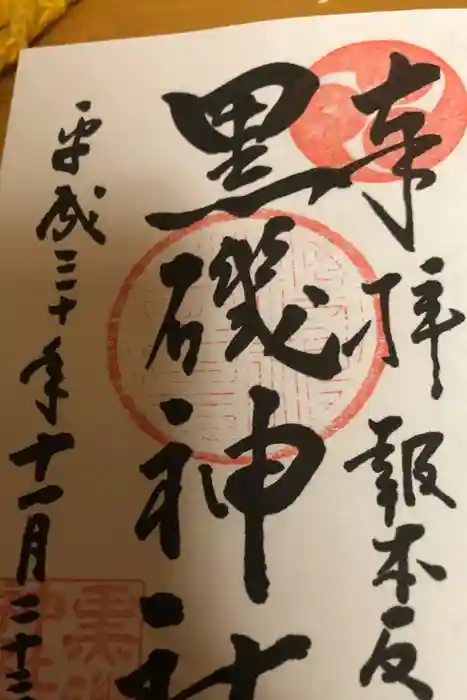 奉拝 報本反
黒磯神社
平成三十年十一月二十三